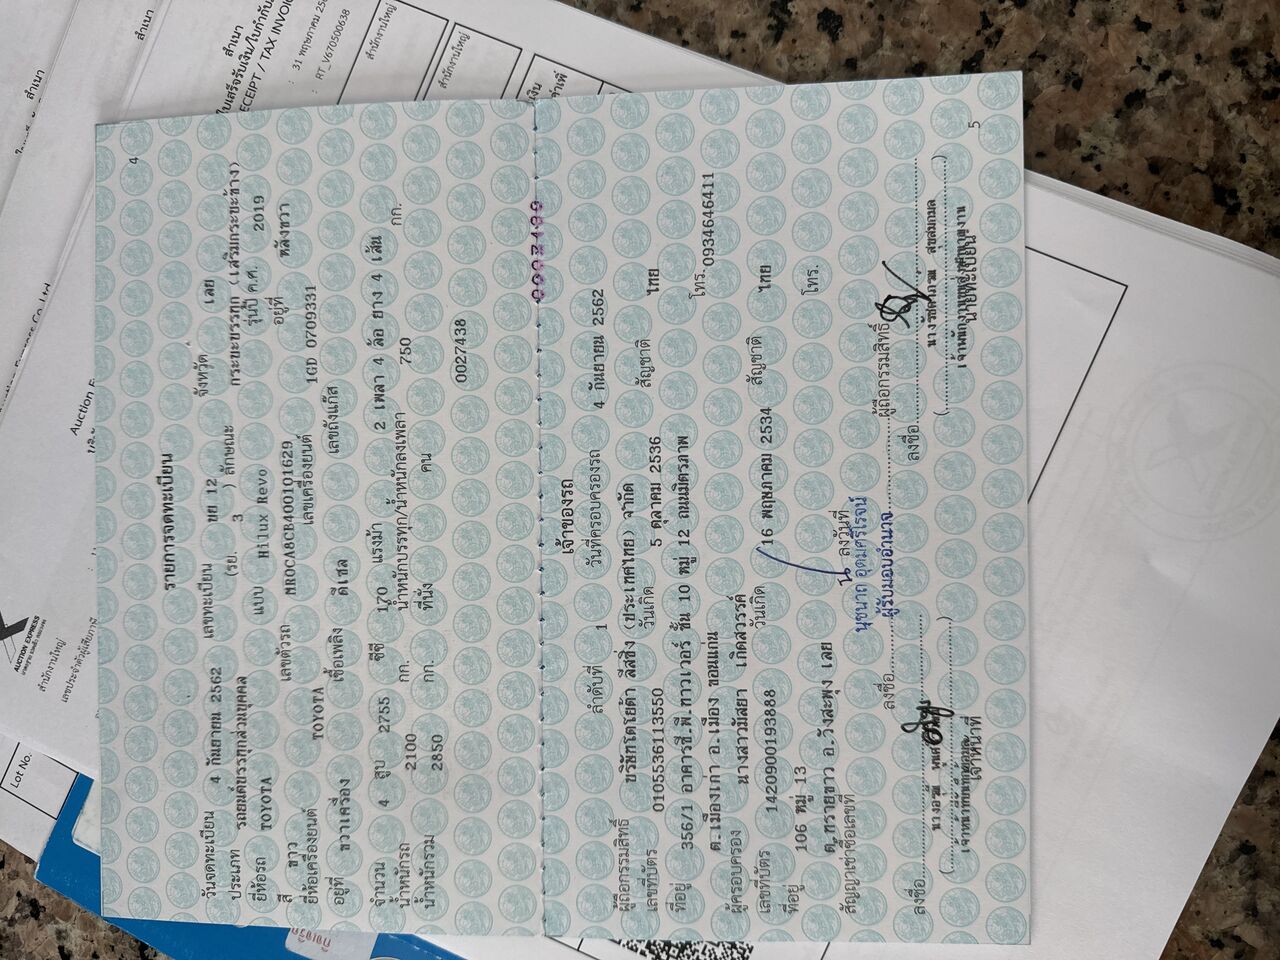 4
รายการจดทะเบียน
วันจดทะเบียน 4 กันยายน 2562 เลขทะเบียน ขย 12 จังหวัด เลย
ประเภท รถยนต์บรรทุกส่วนบุคคล (รย. 3 ) ลักษณะ กระบะบรรทุก (เสริมกระบะข้าง)
ยี่ห้อรถ TOYOTA แบบ Hilux Revo รุ่นปี ค.ศ. 2019
สี ขาว เลขตัวรถ MR0CA8CB400101629 อยู่ที่ หลังขวา
ยี่ห้อเครื่องยนต์ TOYOTA เลขเครื่องยนต์ 1GD 0709331
อยู่ที่ ขวาเครื่อง เชื้อเพลิง ดีเซล เลขถังแก๊ส
จำนวน 4 สูบ 2755 ซีซี 170 แรงม้า 2 เพลา 4 ล้อ ยาง 4 เส้น
น้ำหนักรถ 2100 กก. น้ำหนักบรรทุก/น้ำหนักลงเพลา 750 กก.
น้ำหนักรวม 2850 กก. ที่นั่ง คน
0027438
เจ้าของรถ
ลำดับที่ 1 วันที่ครอบครองรถ 4 กันยายน 2562
ผู้ถือกรรมสิทธิ์ บริษัทโตโยต้า ลีสซิ่ง (ประเทศไทย) จำกัด
เลขที่บัตร 0105536113550 วันเกิด 5 ตุลาคม 2536 สัญชาติ ไทย
ที่อยู่ 356/1 อาคารซี.พี.ทาวเวอร์ ชั้น 10 หมู่ 12 ถนนมิตรภาพ
ต.เมืองเก่า อ.เมือง ขอนแก่น โทร. 0934646411
ผู้ครอบครอง นางสาวมัสยา เกิดสวรรค์
เลขที่บัตร 1420900193888 วันเกิด 16 พฤษภาคม 2534 สัญชาติ ไทย
ที่อยู่ 106 หมู่ 13 โทร.
ต.ทรายขาว อ.วังสะพุง เลย
สัญญาเช่าซื้อเลขที่ ลงวันที่
นุชนาถ อุดมศรีโรจน์
ลงชื่อ ผู้รับมอบอำนาจ ผู้ถือกรรมสิทธิ์
ลงชื่อ ลงชื่อ
เจ้าหน้าที่ นายทะเบียน
5
สำเนา
ใบเสร็จรับเงิน/ใบกำกับ
RECEIPT / TAX INVOIC
: 31 พฤษภาคม 25
: RT_V670500638
สำนักงานใหญ่
สำนักงานใหญ่
สำเนา
AUCTION EXPRESS
สำนักงานใหญ่
เลขประจำตัวผู้เสียภาษี
Lot No.